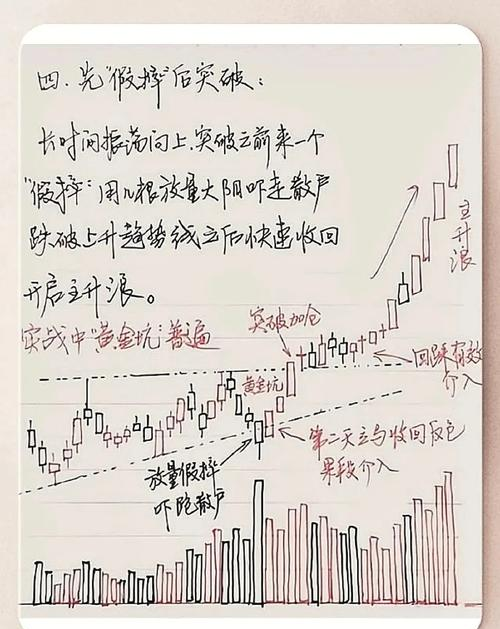 四.先"假摔"后突破：
长时间振荡向上.突破之前来一个
"假摔"：用几根放量大阴吓走散户
跌破上升趋势线之后快速收回
开启主升浪。
实战中"黄金坑"普遍
突破加仓
主升浪
回踩有效
介入
黄金坑
第二天立马收回反包
果段介入
放量假摔
吓跑散户